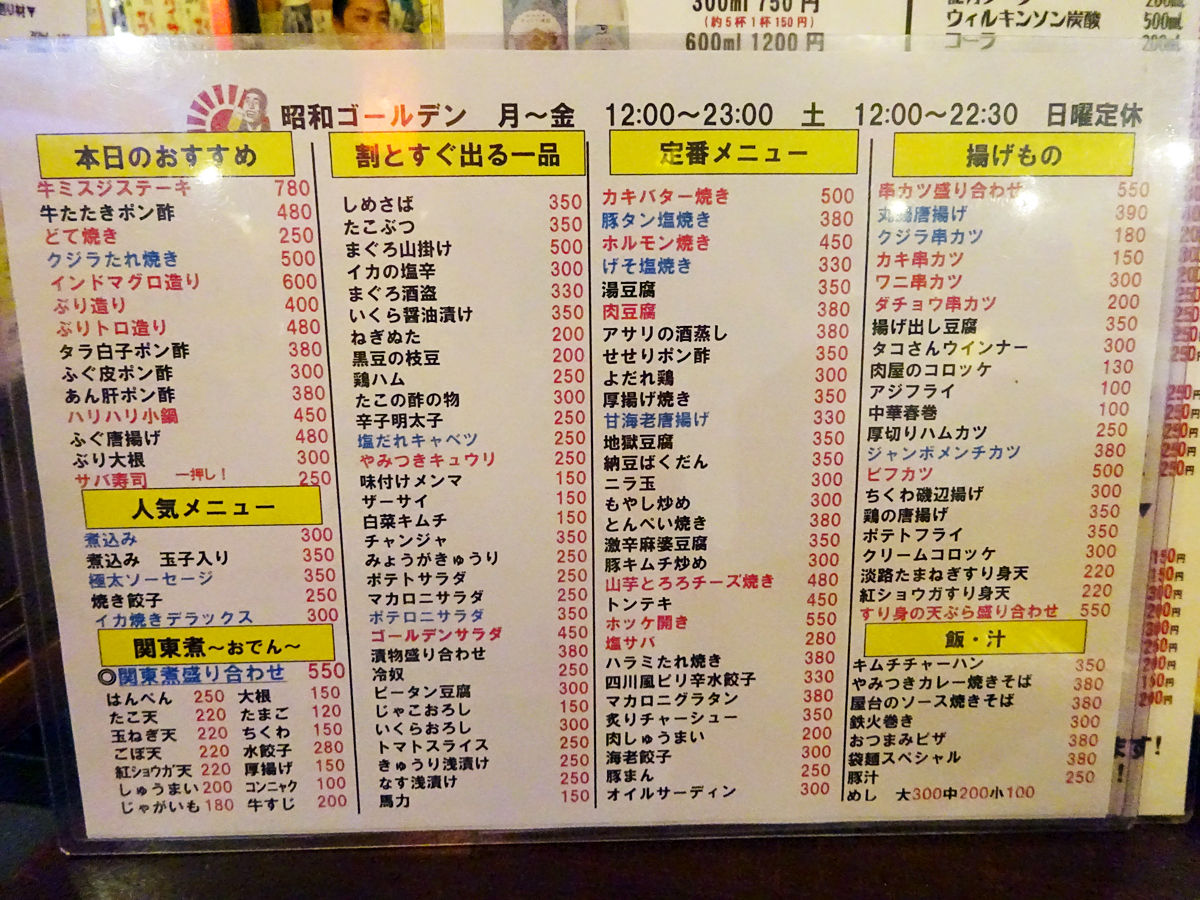 300ml 750円
(約5杯1杯150円)
600ml 1200円
ウィルキンソン炭酸 500ml
コーラ 200ml
昭和ゴールデン 月～金 12:00～23:00 土 12:00～22:30 日曜定休
本日のおすすめ
牛ミスジステーキ 780
牛たたきポン酢 480
どて焼き 250
クジラたれ焼き 500
インドマグロ造り 600
ぶり造り 400
ぶりトロ造り 480
タラ白子ポン酢 380
ふぐ皮ポン酢 300
あん肝ポン酢 380
ハリハリ小鍋 450
ふぐ唐揚げ 480
ぶり大根 300
サバ寿司 一押し! 250
人気メニュー
煮込み 300
煮込み 玉子入り 350
極太ソーセージ 350
焼き餃子 250
イカ焼きデラックス 300
関東煮～おでん～
◎関東煮盛り合わせ 550
はんぺん 250 大根 150
たこ天 220 たまご 120
玉ねぎ天 220 ちくわ 150
ごぼ天 220 水餃子 280
紅ショウガ天 220 厚揚げ 150
しゅうまい 200 コンニャク 100
じゃがいも 180 牛すじ 200
割とすぐ出る一品
しめさば 350
たこぶつ 350
まぐろ山掛け 500
イカの塩辛 300
まぐろ酒盗 330
いくら醤油漬け 350
ねぎぬた 200
黒豆の枝豆 200
鶏ハム 250
たこの酢の物 300
辛子明太子 250
塩だれキャベツ 250
やみつきキュウリ 250
味付けメンマ 150
ザーサイ 150
白菜キムチ 150
チャンジャ 350
みょうがきゅうり 250
ポテトサラダ 250
マカロニサラダ 250
ポテロニサラダ 350
ゴールデンサラダ 450
漬物盛り合わせ 380
冷奴 250
ピータン豆腐 300
じゃこおろし 150
いくらおろし 300
トマトスライス 250
きゅうり浅漬け 250
なす浅漬け 250
馬力 150
定番メニュー
カキバター焼き 500
豚タン塩焼き 380
ホルモン焼き 450
げそ塩焼き 330
湯豆腐 350
肉豆腐 380
アサリの酒蒸し 380
せせりポン酢 350
よだれ鶏 300
厚揚げ焼き 350
甘海老唐揚げ 330
地獄豆腐 350
納豆ばくだん 350
ニラ玉 300
もやし炒め 300
とんぺい焼き 380
激辛麻婆豆腐 350
豚キムチ炒め 300
山芋とろろチーズ焼き 480
トンテキ 450
ホッケ開き 550
塩サバ 280
ハラミたれ焼き 380
四川風ピリ辛水餃子 330
マカロニグラタン 380
炙りチャーシュー 350
肉しゅうまい 200
海老餃子 300
豚まん 250
オイルサーディン 300
揚げもの
串カツ盛り合わせ 550
丸鶏唐揚げ 390
クジラ串カツ 180
カキ串カツ 150
ワニ串カツ 300
ダチョウ串カツ 200
揚げ出し豆腐 350
タコさんウインナー 300
肉屋のコロッケ 130
アジフライ 100
中華春巻 100
厚切りハムカツ 250
ジャンボメンチカツ 380
ビフカツ 500
ちくわ磯辺揚げ 300
鶏の唐揚げ 350
ポテトフライ 350
クリームコロッケ 300
淡路たまねぎすり身天 220
紅ショウガすり身天 220
すり身の天ぷら盛り合わせ 550
飯・汁
キムチチャーハン 350
やみつきカレー焼きそば 380
屋台のソース焼きそば 380
鉄火巻き 300
おつまみピザ 380
袋麺スペシャル 380
豚汁 250
めし 大300中200小100